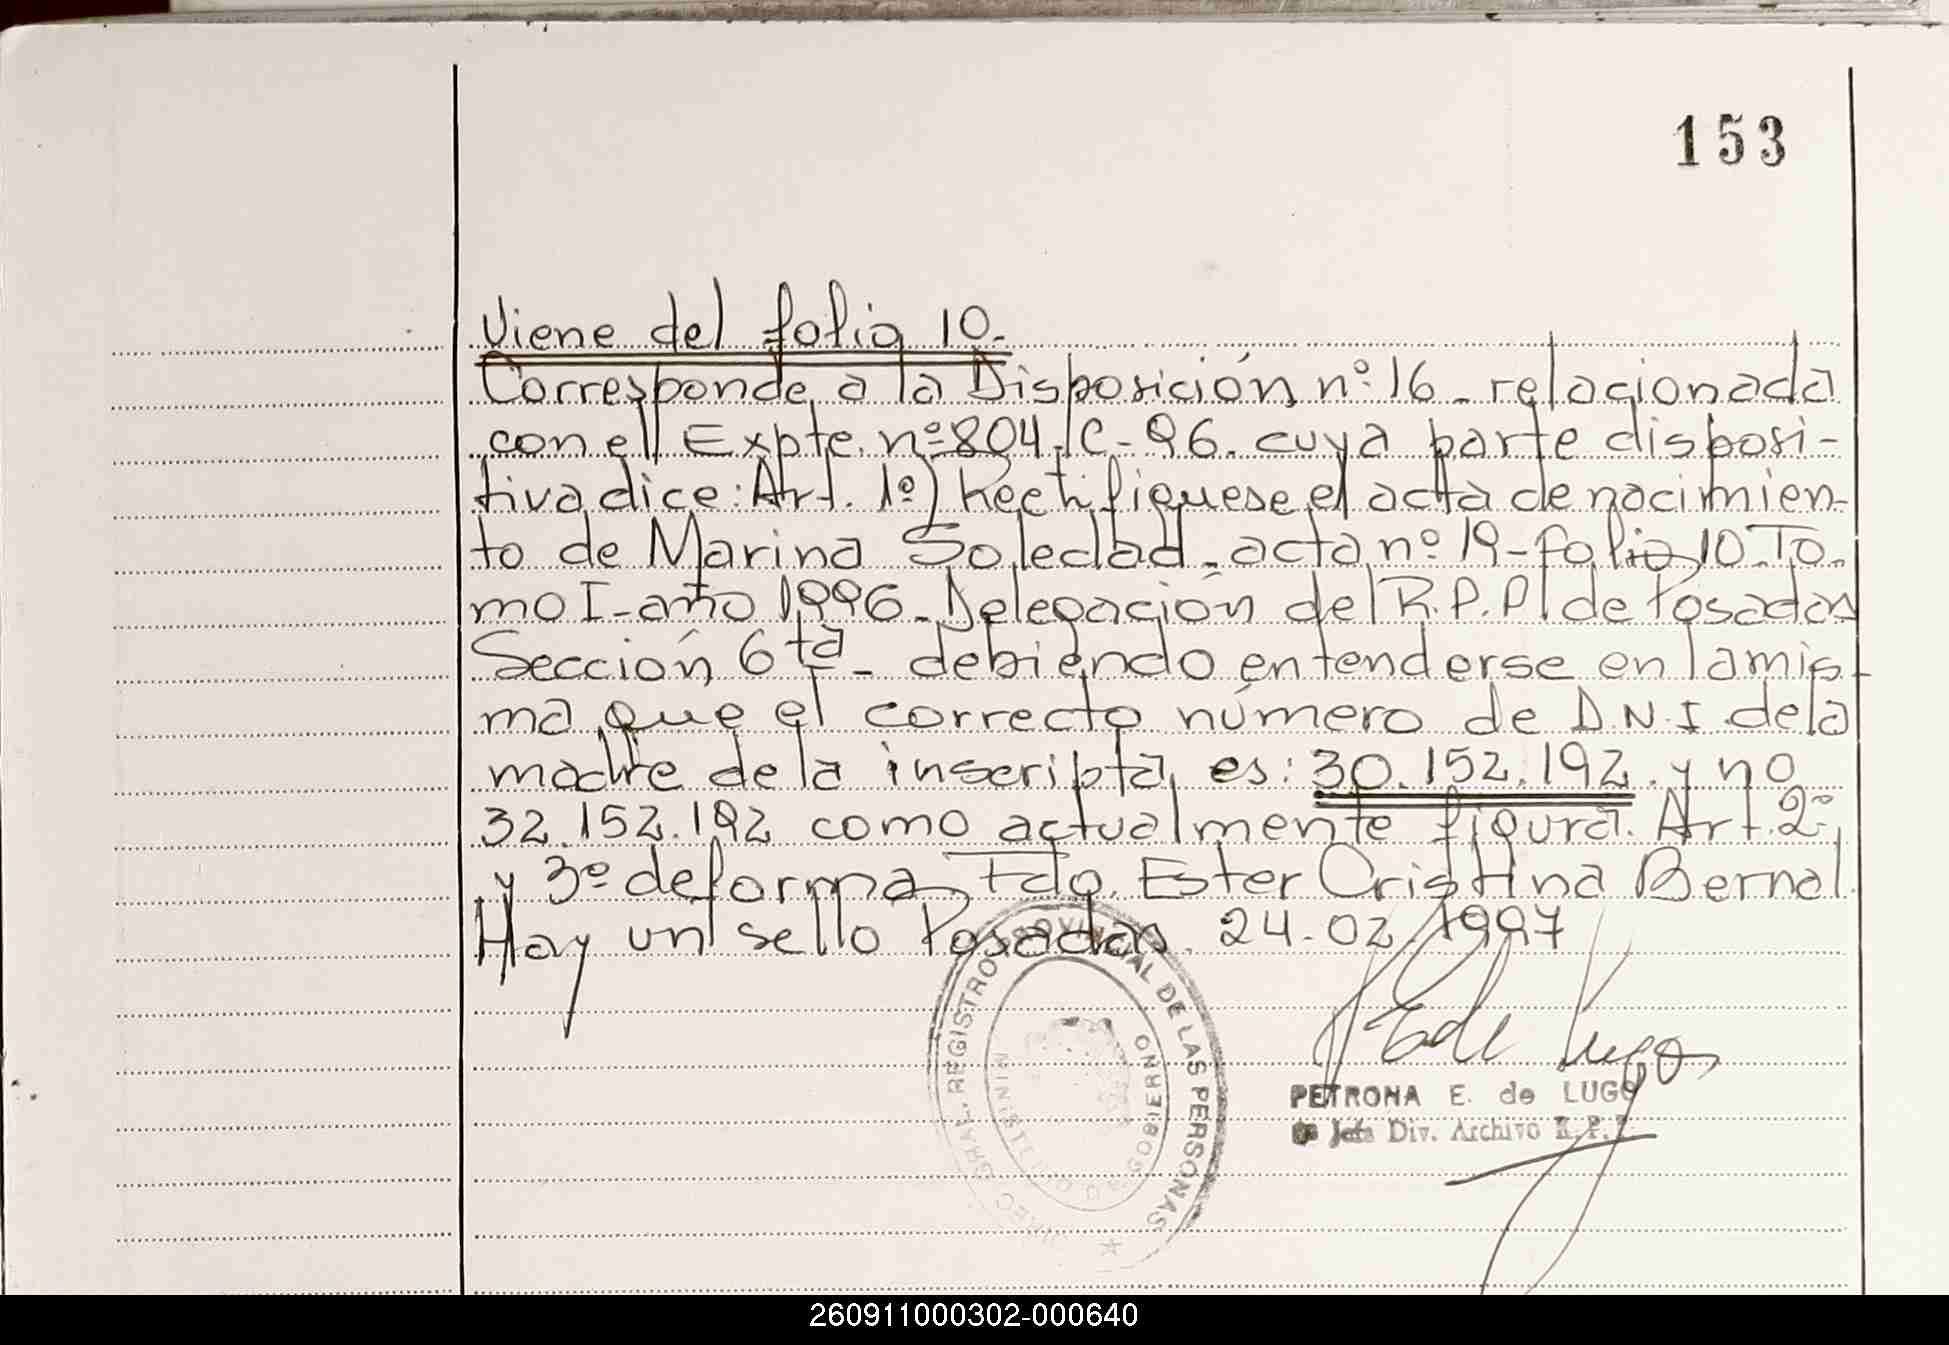 153
Viene del folio 10.
Corresponde a la Disposición nº 16 - relacionada
con el Expte. nº 804 - C - 96. cuya parte disposi-
tiva dice: Art. 1º) Rectifíquese el acta de nacimien-
to de Marina Soledad - acta nº 19 - folio 10. To-
mo I - año 1996 - Delegación del R.P.P. de Posadas
Sección 6ta - debiendo entenderse en la mis-
ma que el correcto número de D.N.I. de la
madre de la inscripta, es: 30.152.192. y no
32.152.192 como actualmente figura. Art. 2º
y 3º de forma. Fdo. Ester Cristina Bernal.
Hay un sello Posadas. 24-02-1997
REGISTRO PROVINCIAL DE LAS PERSONAS
MINISTERIO DE GOBIERNO
P. E. de Lugo
PETRONA E. de LUGO
Jefa Div. Archivo R. P. P.
260911000302-000640